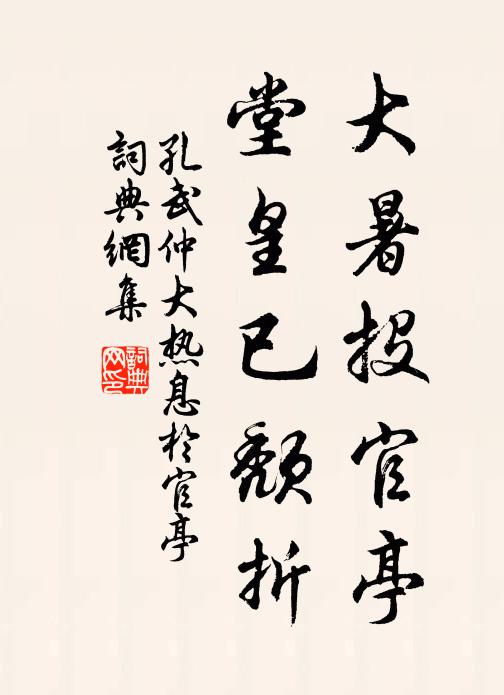 大暑投官亭
堂皇已颓折
孔武仲大热息於官亭
詞典網集
詞典网印